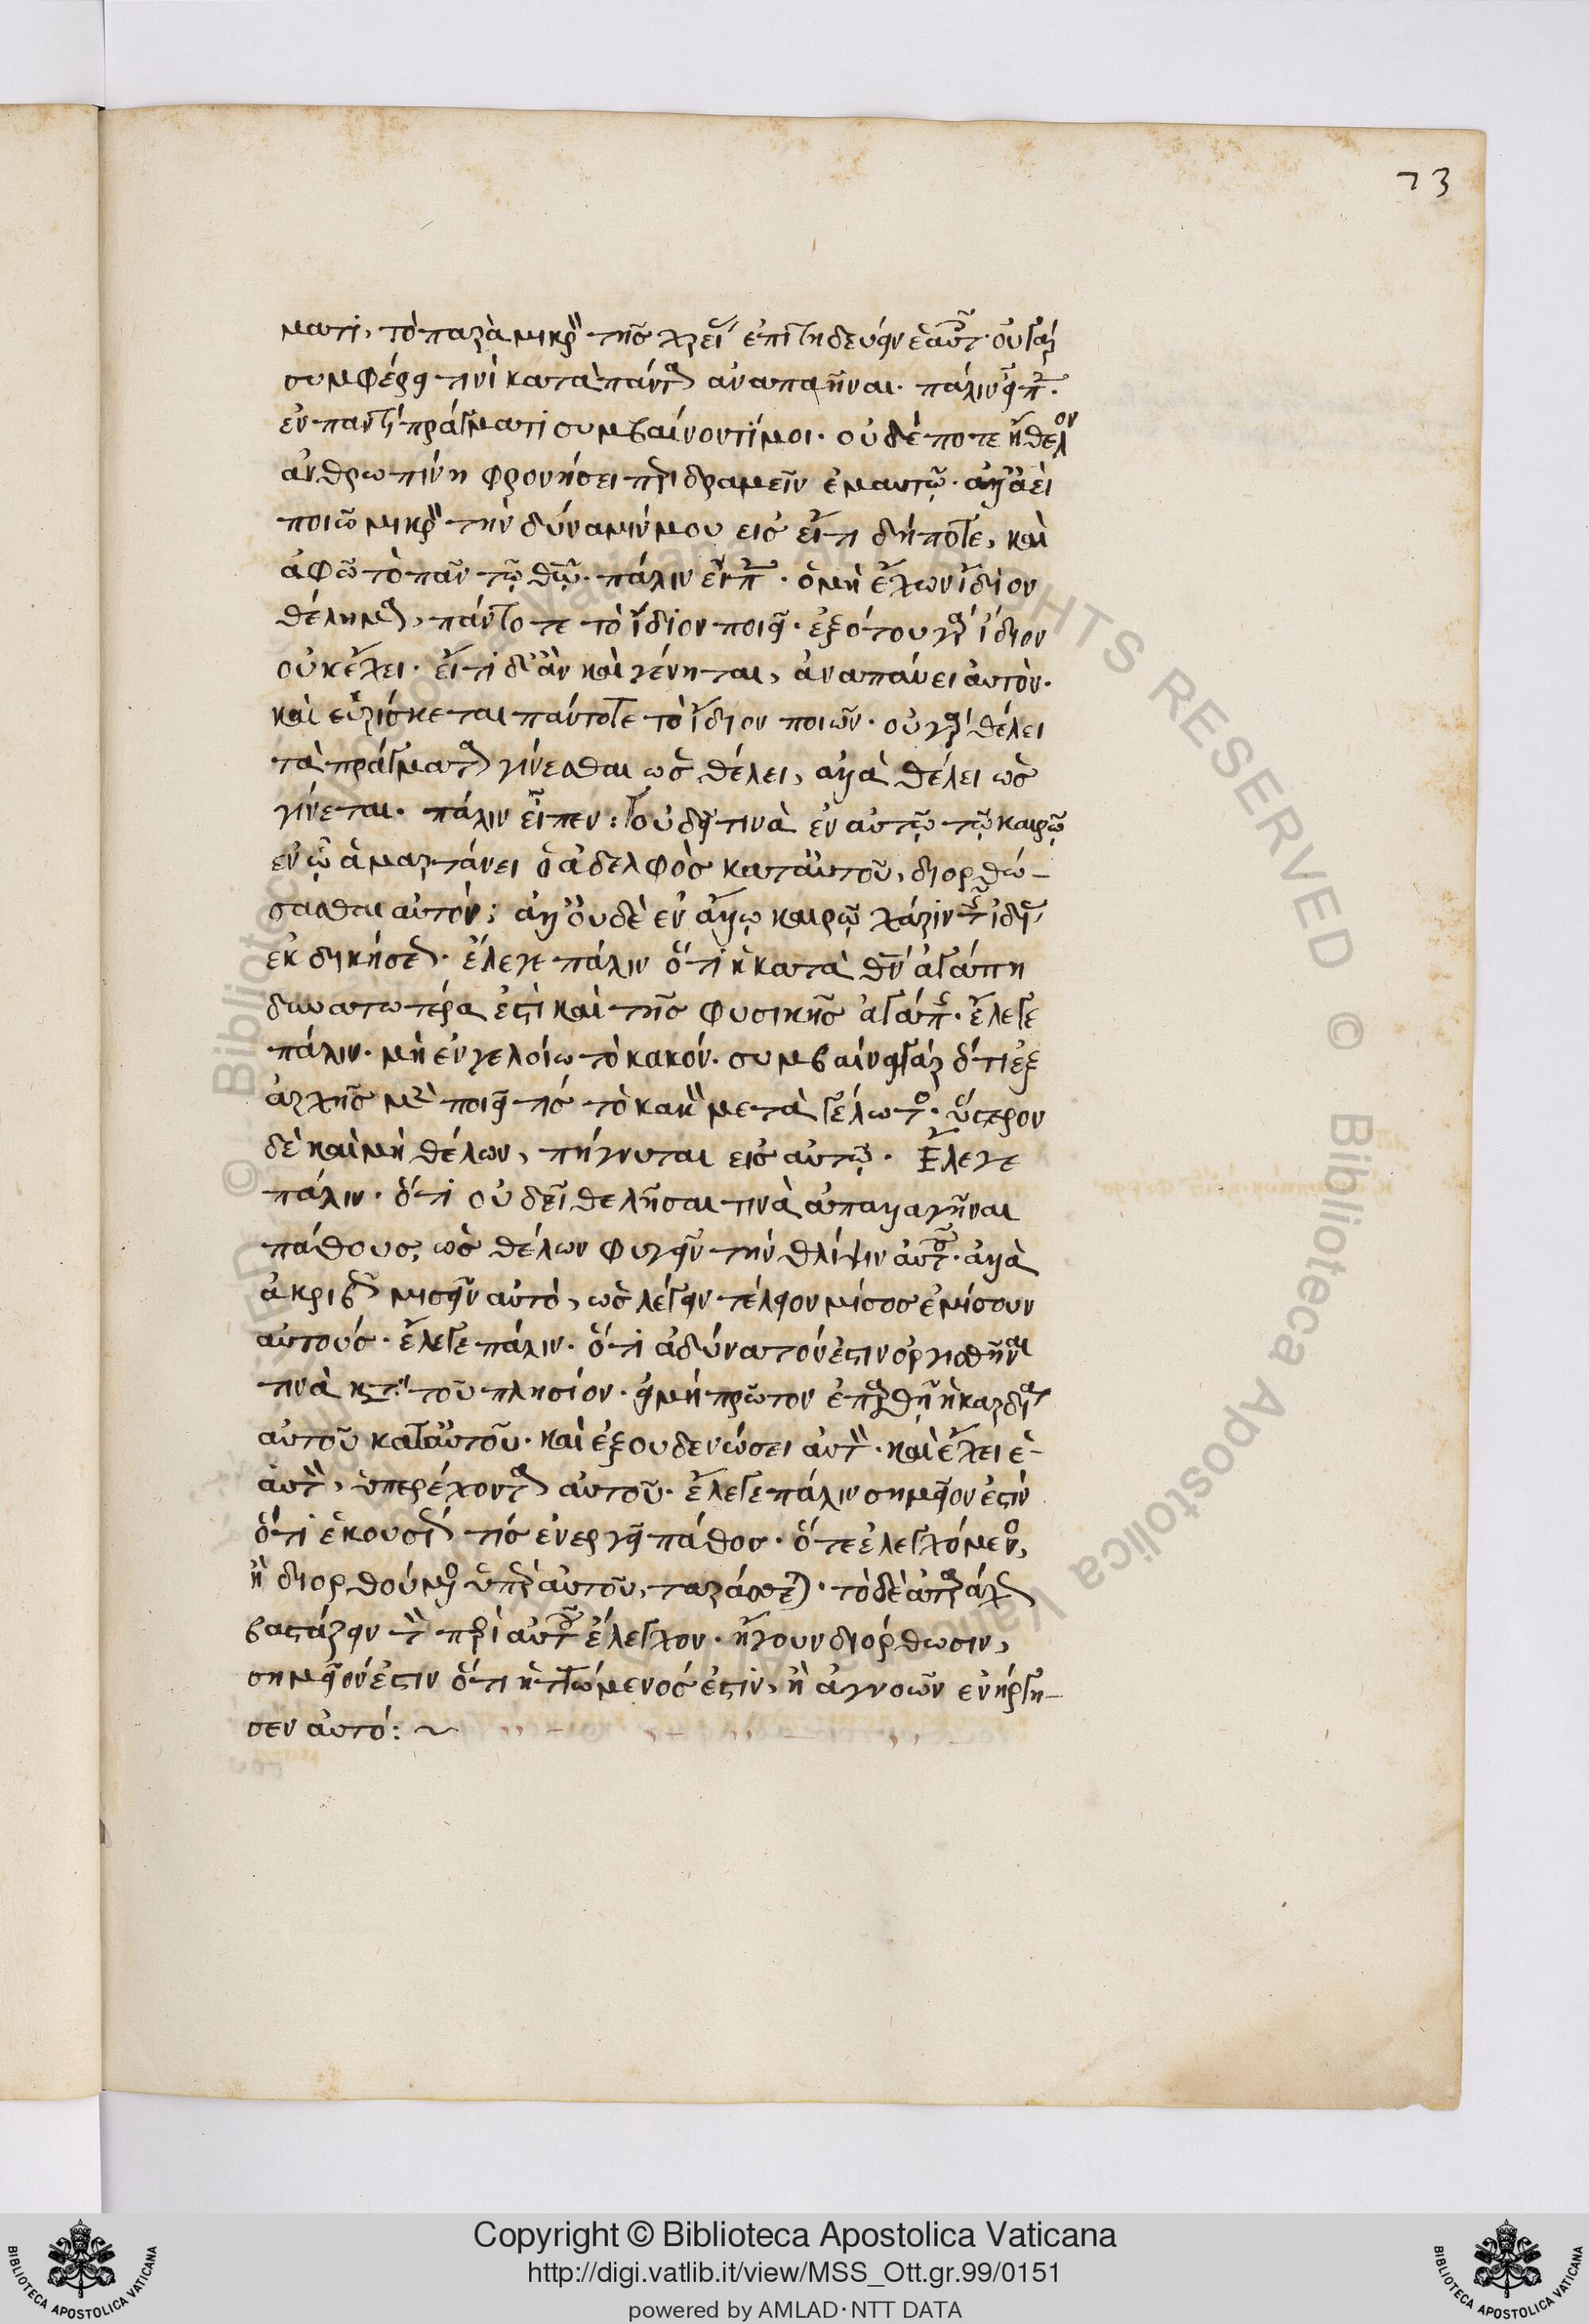 73
ματι, τὸ παρὰ μικρὸν τῆς χρείας ἐπιτηδεύειν ἑαυτῷ. οὐ γὰρ
συμφέρει τινὶ κατὰ πάντα ἀναπαῆναι. πάλιν εἶπεν.
ἐν παντὶ πράγματι συμβαίνοντί μοι. οὐδέποτε ἤθελον
ἀνθρωπίνη φρονήσει περιδραμεῖν ἐμαυτῷ. ἀλλ' ἀεὶ
ποιῶ μικρὸν τὴν δύναμίν μου εἰς εἴ τι δήποτε, καὶ
ἀφῶ τὸ πᾶν τῷ θῷ. πάλιν εἶπεν. ὁ μὴ ἔχων ἴδιον
θέλημα, πάντοτε τὸ ἴδιον ποιεῖ. ἐξότου γὰρ ἴδιον
οὐκ ἔχει. εἴ τι δ' ἂν καὶ γένηται, ἀναπαύει αὐτὸν.
καὶ εὑρίσκεται πάντοτε τὸ ἴδιον ποιῶν. οὐ γὰρ θέλει
τὰ πράγματα γίνεσθαι ὡς θέλει, ἀλλὰ θέλει ὡς
γίνεται. πάλιν εἶπεν: οὐ δεῖ τινὰ ἐν αὐτῷ τῷ καιρῷ
ἐν ᾧ ἁμαρτάνει ὁ ἀδελφὸς κατ' αὐτοῦ, διορθώ-
σασθαι αὐτόν; ἀλλ' οὐδὲ ἐν ἄλλῳ καιρῷ χάριν τοῦ ἰδίαν
ἐκδικῆσαι. ἔλεγε πάλιν ὅτι ἡ κατὰ θν ἀγάπη
δυνατωτέρα ἐστὶ καὶ τῆς φυσικῆς ἀγάπης. ἔλεγε
πάλιν. μὴ ἐν γελοίω τὸ κακόν. συμβαίνει γὰρ ὅτι ἐξ
ἀρχῆς μὲν ποιεῖ τίς τὸ κακὸν μετὰ γέλωτος. ὕστερον
δὲ καὶ μὴ θέλων, πήγνυται εἰς αὐτῷ. Ἔλεγε
πάλιν. ὅτι οὐ δεῖ θελῆσαι τινὰ ἀπαλλαγῆναι
πάθους, ὡς θέλων φυγεῖν τὴν θλίψιν αὐτοῦ. ἀλλὰ
ἀκριβῶς μισεῖν αὐτὸ, ὡς λέγειν τέλειον μῖσος ἐμίσουν
αὐτούς. ἔλεγε πάλιν. ὅτι ἀδύνατόν ἐστιν ὀργισθῆναι
τινὰ κατὰ τοῦ πλησίον. εἰ μὴ πρῶτον ἐπαρθῇ ἡ καρδία
αὐτοῦ κατ' αὐτοῦ. καὶ ἐξουδενώσει αὐτὸν. καὶ ἔχει ἑ-
αυτὸν, ὑπερέχοντα αὐτοῦ. ἔλεγε πάλιν σημεῖον ἐστὶν
ὅτι ἑκουσίως τίς ἐνεργεῖ πάθος. ὅτε ἐλεγχόμενος,
ἢ διορθούμενος ὑπὲρ αὐτοῦ, ταράσσεται. τὸ δὲ ἀταράχως
βαστάζειν τὸν περὶ αὐτοῦ ἔλεγχον. ἤγουν διόρθωσιν,
σημεῖόν ἐστιν ὅτι ἡττώμενός ἐστιν, ἢ ἀγνοῶν ἐνήργη-
σεν αὐτό: ~
© Biblioteca Apostolica Vaticana ALL RIGHTS RESERVED
Copyright © Biblioteca Apostolica Vaticana
http://digi.vatlib.it/view/MSS_Ott.gr.99/0151
powered by AMLAD·NTT DATA
BIBLIOTECA APOSTOLICA VATICANA
BIBLIOTECA APOSTOLICA VATICANA